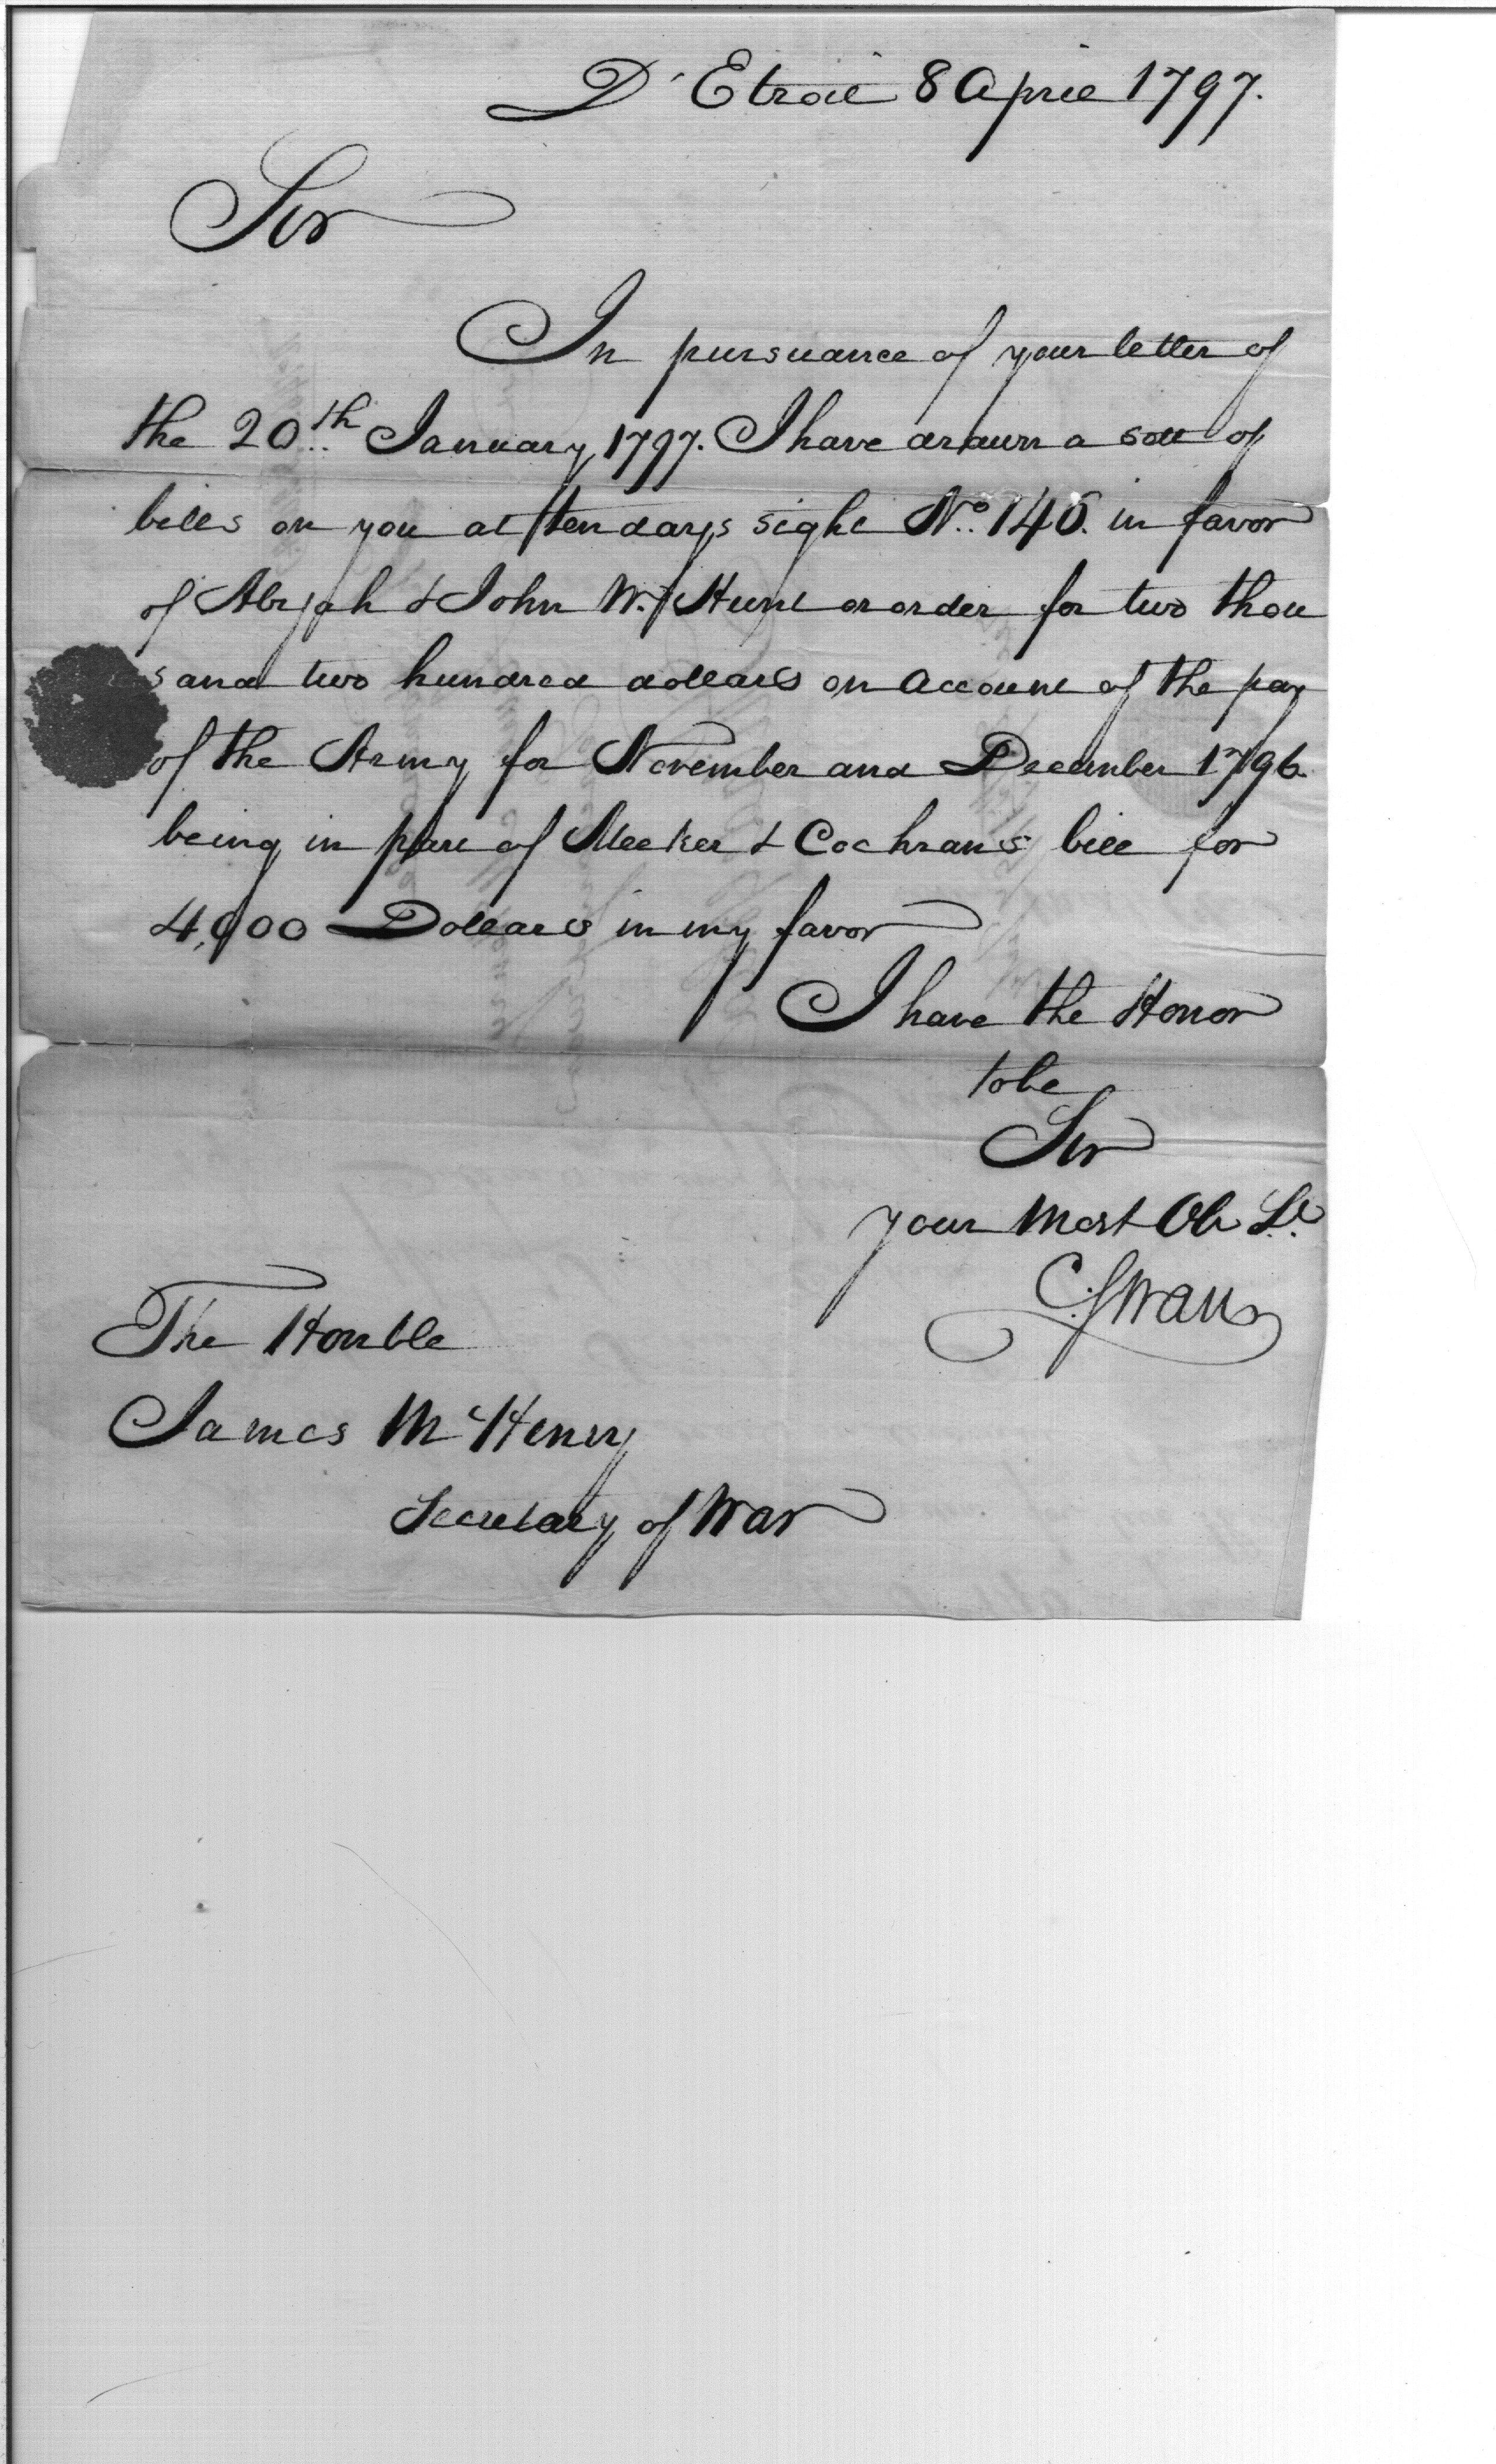 D'Etroit 8 April 1797.
Sir
In pursuance of your letter of
the 20th January 1797. I have drawn a sett of
bills on you at ten days sight No. 146. in favor
of Abijah & John W. Hunt or order for two thou
sand two hundred dollars on account of the pay
of the Army for November and December 1796.
being in part of Meeker & Cochrans bill for
4,000 Dollars in my favor
I have the Honor
to be
Sir
your Most Ob St.
C. Swan
The Honble
James McHenry
Secretary of War